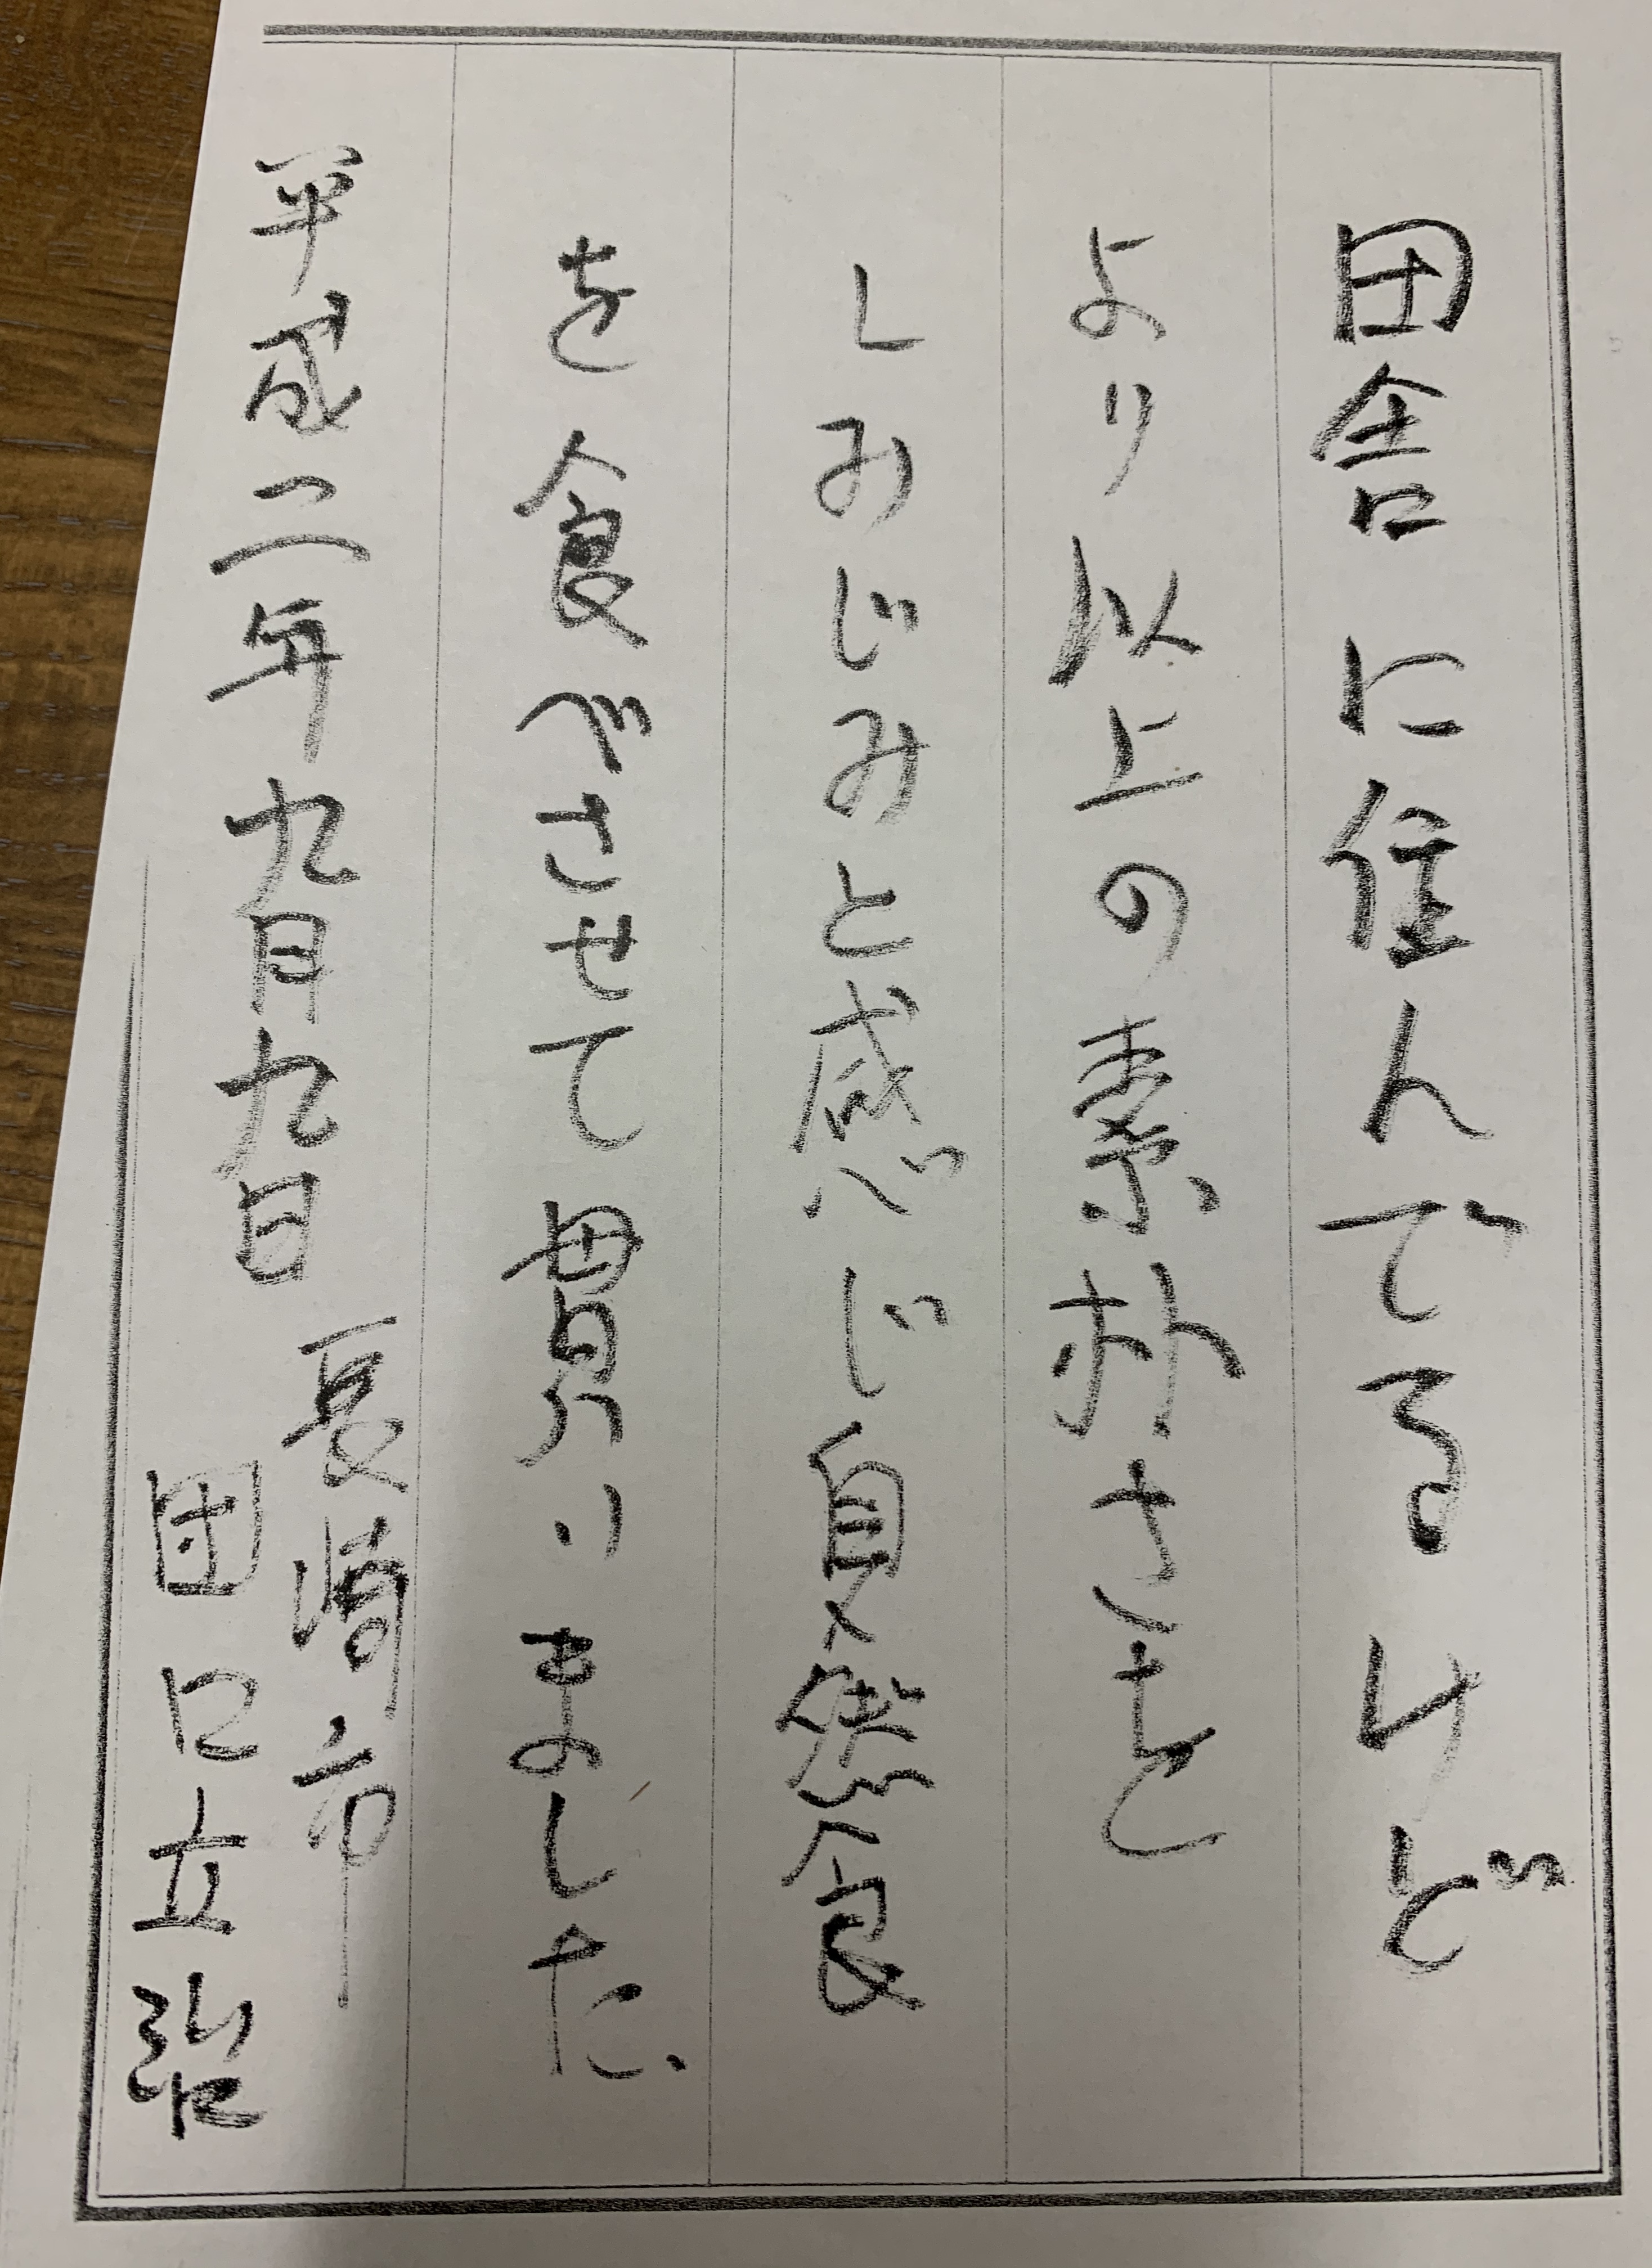 田舎に住んでるけど
より以上の素朴さを
しみじみと感じ自然食
を食べさせて貰いました.
平成二年九月九日
長崎市
田口立